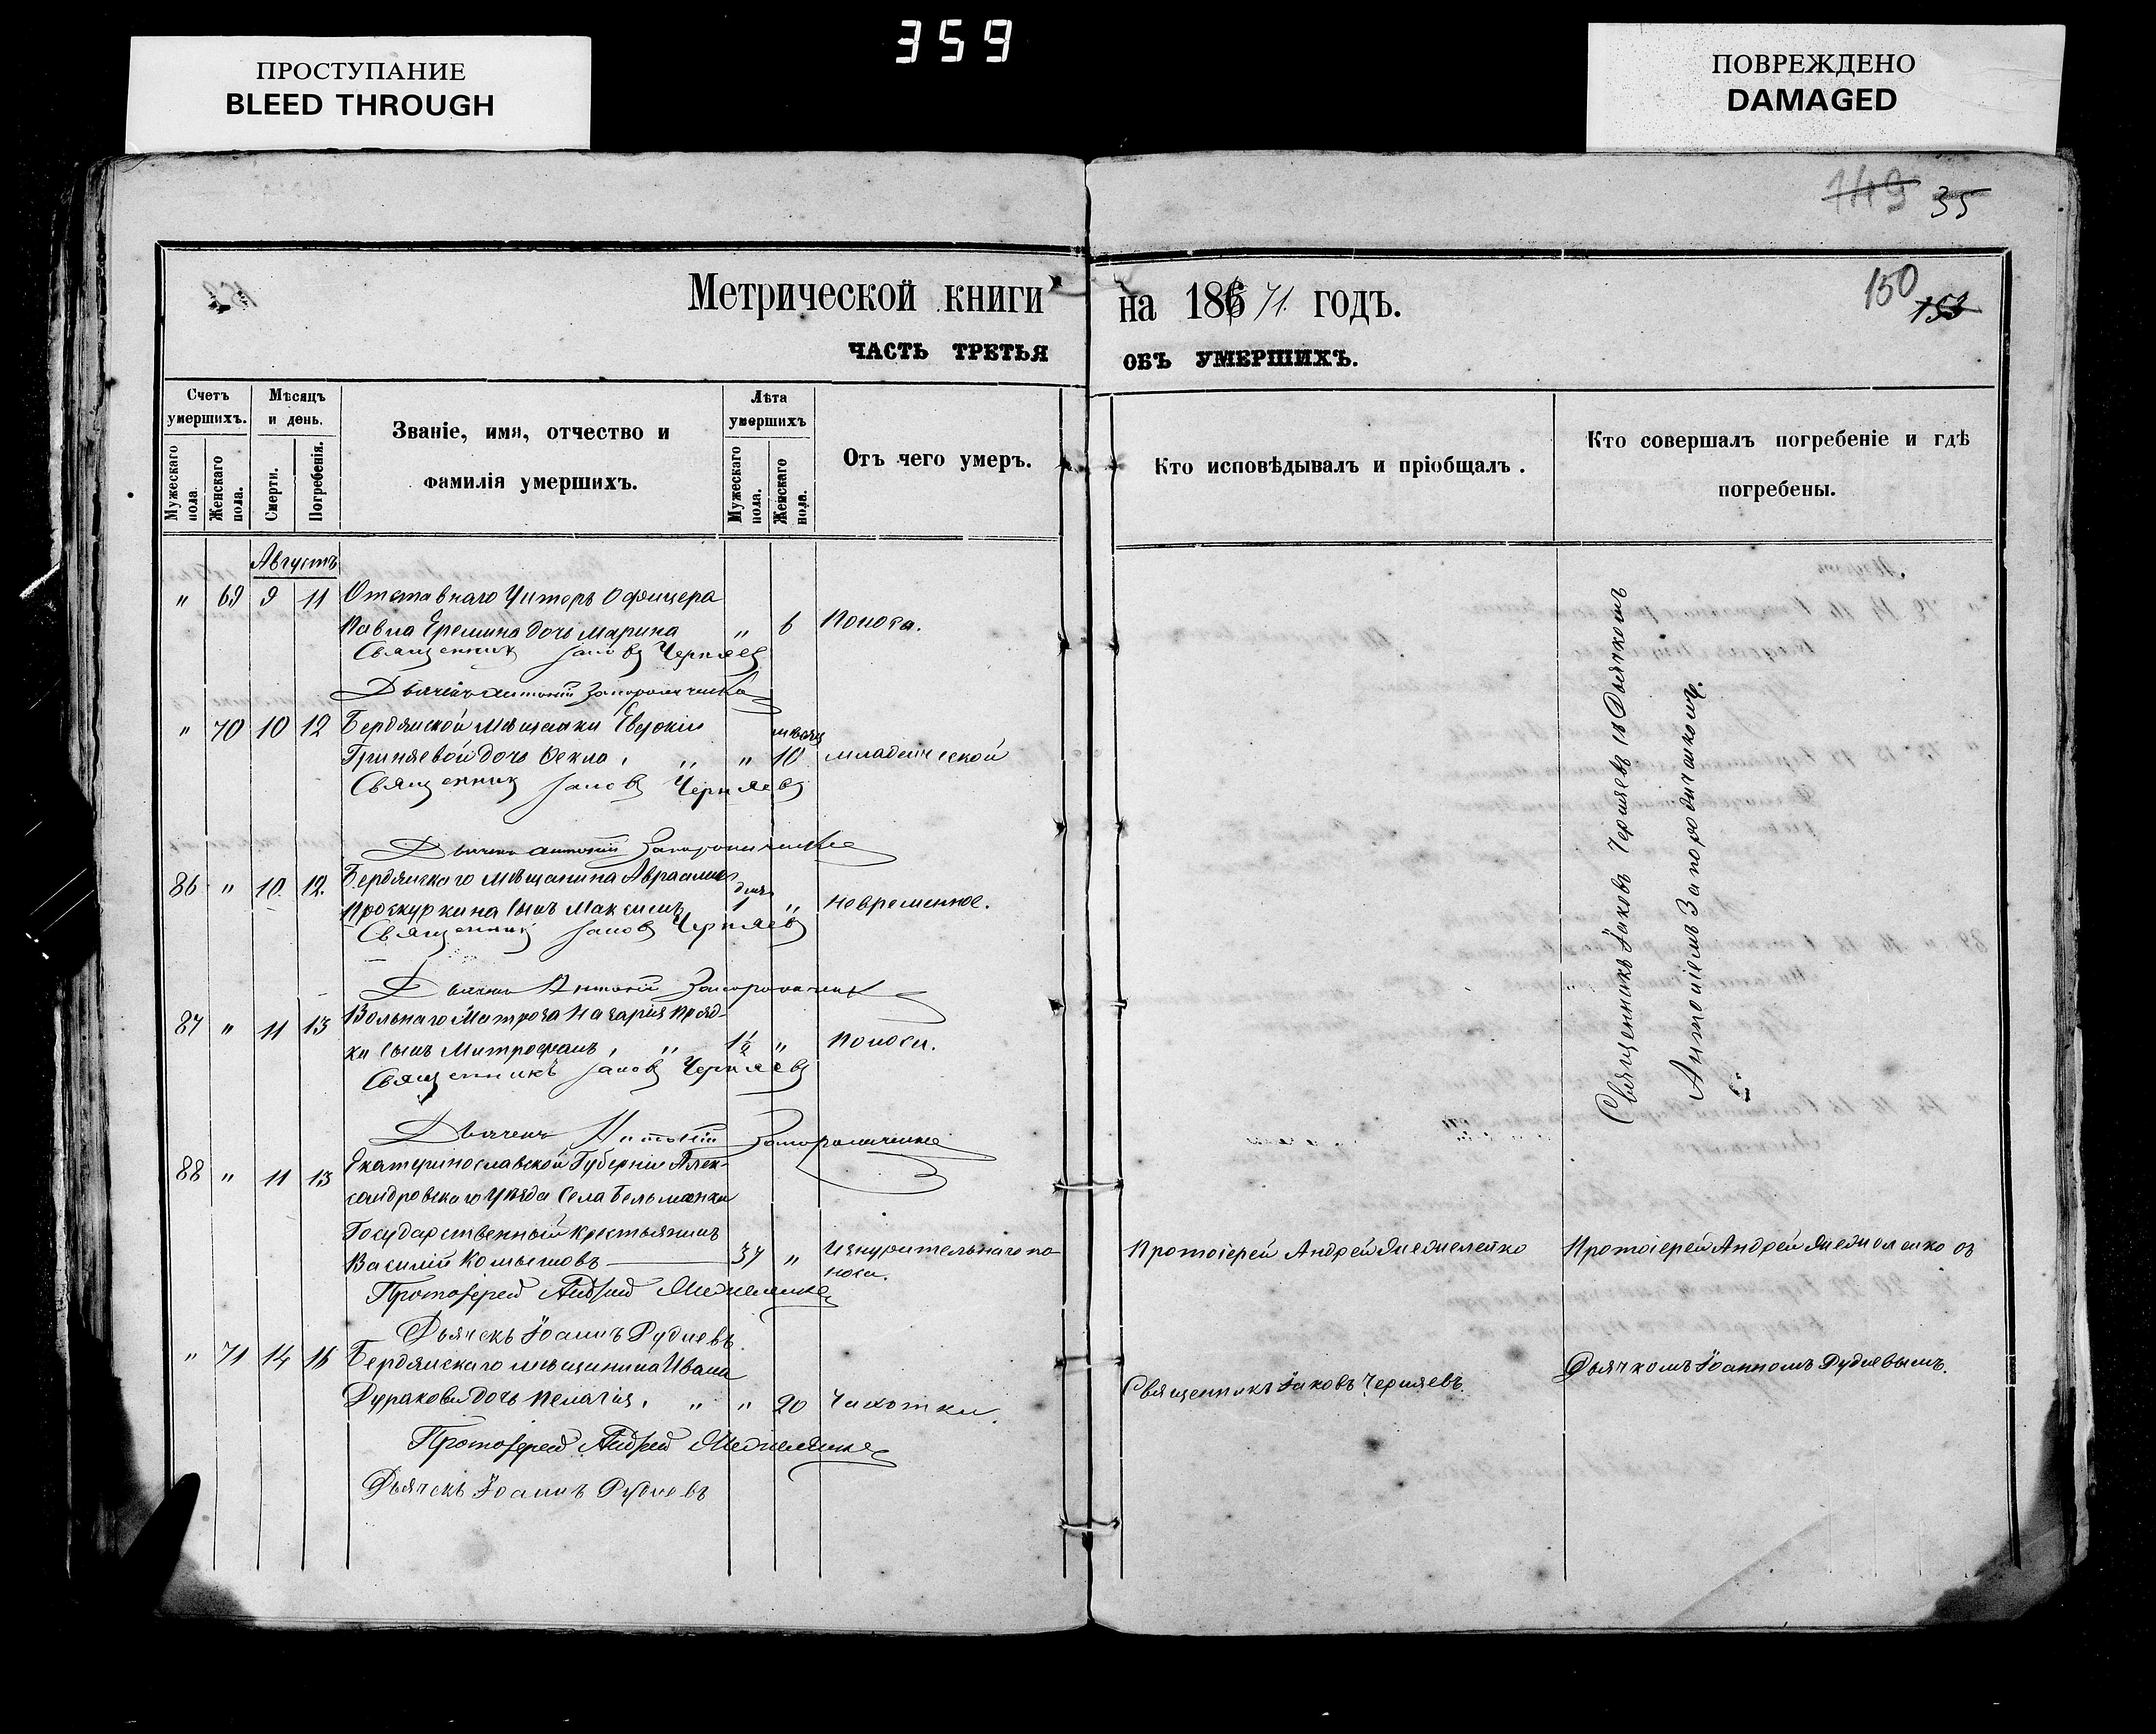 359
ПРОСТУПАНИЕ
BLEED THROUGH
ПОВРЕЖДЕНО
DAMAGED
149 35
150
153
Метрической книги на 186 71. годъ.
ЧАСТЬ ТРЕТЬЯ ОБЪ УМЕРШИХЪ.
Счетъ умершихъ.
Мужескаго пола.
Женскаго пола.
Мѣсяцъ и день.
Смерти.
Погребенія.
Званіе, имя, отчество и
фамилія умершихъ.
Лѣта умершихъ
Мужескаго пола.
Женскаго пола.
Отъ чего умеръ.
Кто исповѣдывалъ и пріобщалъ.
Кто совершалъ погребеніе и гдѣ
погребены.
Августъ
" 69 9 11 Отставнаго Унтеръ Офицера
Павла Еремина дочь Марина " 6 Поноса.
Священникъ Іаковъ Черняевъ
Дьячекъ Антоній
" 70 10 12 Бердянской Мѣщанки Евдокіи мѣсяц
Гриняевой дочь Ѳекла, " " 10 младенческой
Священникъ Іаковъ Черняевъ
Дьячекъ Антоній
86 " 10. 12. Бердянскаго мѣщанина Авраама дня
Проскуркина сынъ Максимъ 1 " невременное.
Священникъ Іаковъ Черняевъ
Дьячекъ Антоній
87 " 11 13 Вольнаго Матроса Назарія
ки сынъ Митрофанъ, " 1½ " Поноса.
Священникъ Іаковъ Черняевъ
Дьячекъ Антоній
88 " 11 13 Екатеринославской Губерніи Алек-
сандровскаго уѣзда Села Бельманки
Государственный крестьянинъ
Василій Комышовъ 37 " Изнурительнаго по-
носа.
Протоіерей Андрей
Дьячекъ Іоаннъ Рудневъ.
" 71 14 16 Бердянскаго мѣщанина Ивана
Дуракова дочь Пелагія, " " 20 Чахотки.
Протоіерей Андрей
Дьячекъ Іоаннъ Рудневъ
Священникъ Іаковъ Черняевъ съ Дьячкомъ
Антоніемъ
Протоіерей Андрей
Протоіерей Андрей съ
Священникъ Іаковъ Черняевъ.
Дьячкомъ Іоанномъ Рудневымъ.